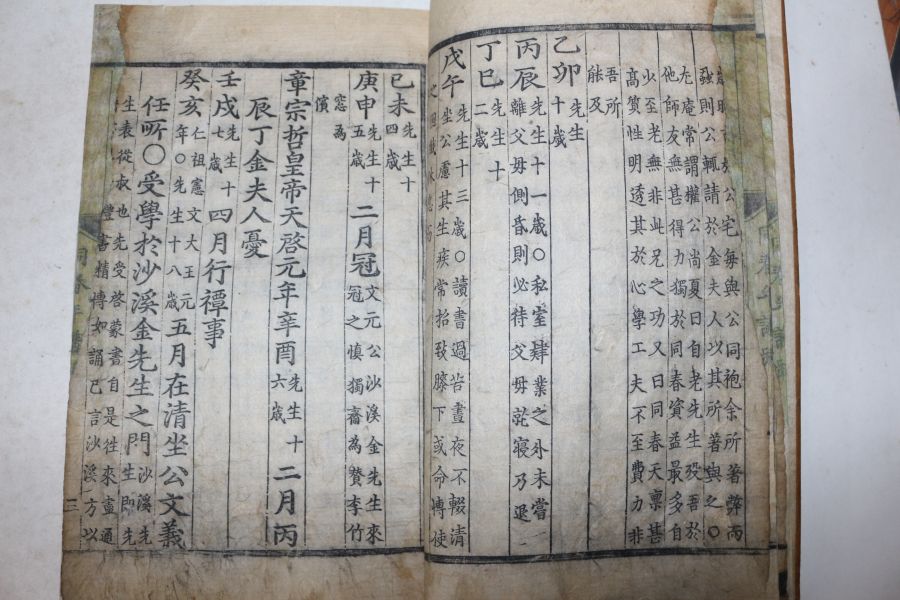 公宅每與公同袍余所著弊而
則公輒請於金夫人以其所著與之○
尤庵常謂權公尚夏曰自老先生歿吾於
他師友無甚得力獨於同春資益最多自
少至老無非此兄之功又曰同春天稟甚
高質性明透其於心學工夫不至費力非
吾所
能及
乙卯先生十歲
丙辰先生十一歲○私室肄業之外未嘗
離父母側昏則必待父母就寢乃退
丁巳先生十二歲
戊午先生十三歲○讀書過苦晝夜不輟清
坐公慮其生疾常招致膝下或命博使
之
己未先生十四歲
庚申先生十五歲二月冠文元公沙溪金先生來
冠之愼獨齋為贊李竹
窓為
儐
章宗哲皇帝天啓元年辛酉先生十六歲二月丙
辰丁金夫人憂
壬戌先生十七歲四月行禫事
癸亥仁祖憲文大王元年○先生十八歲五月在清坐公文義
任所○受學於沙溪金先生之門沙溪先生即先
生表從叔也先受啓蒙書自是往來盡通
精博如誦己言沙溪方以
三